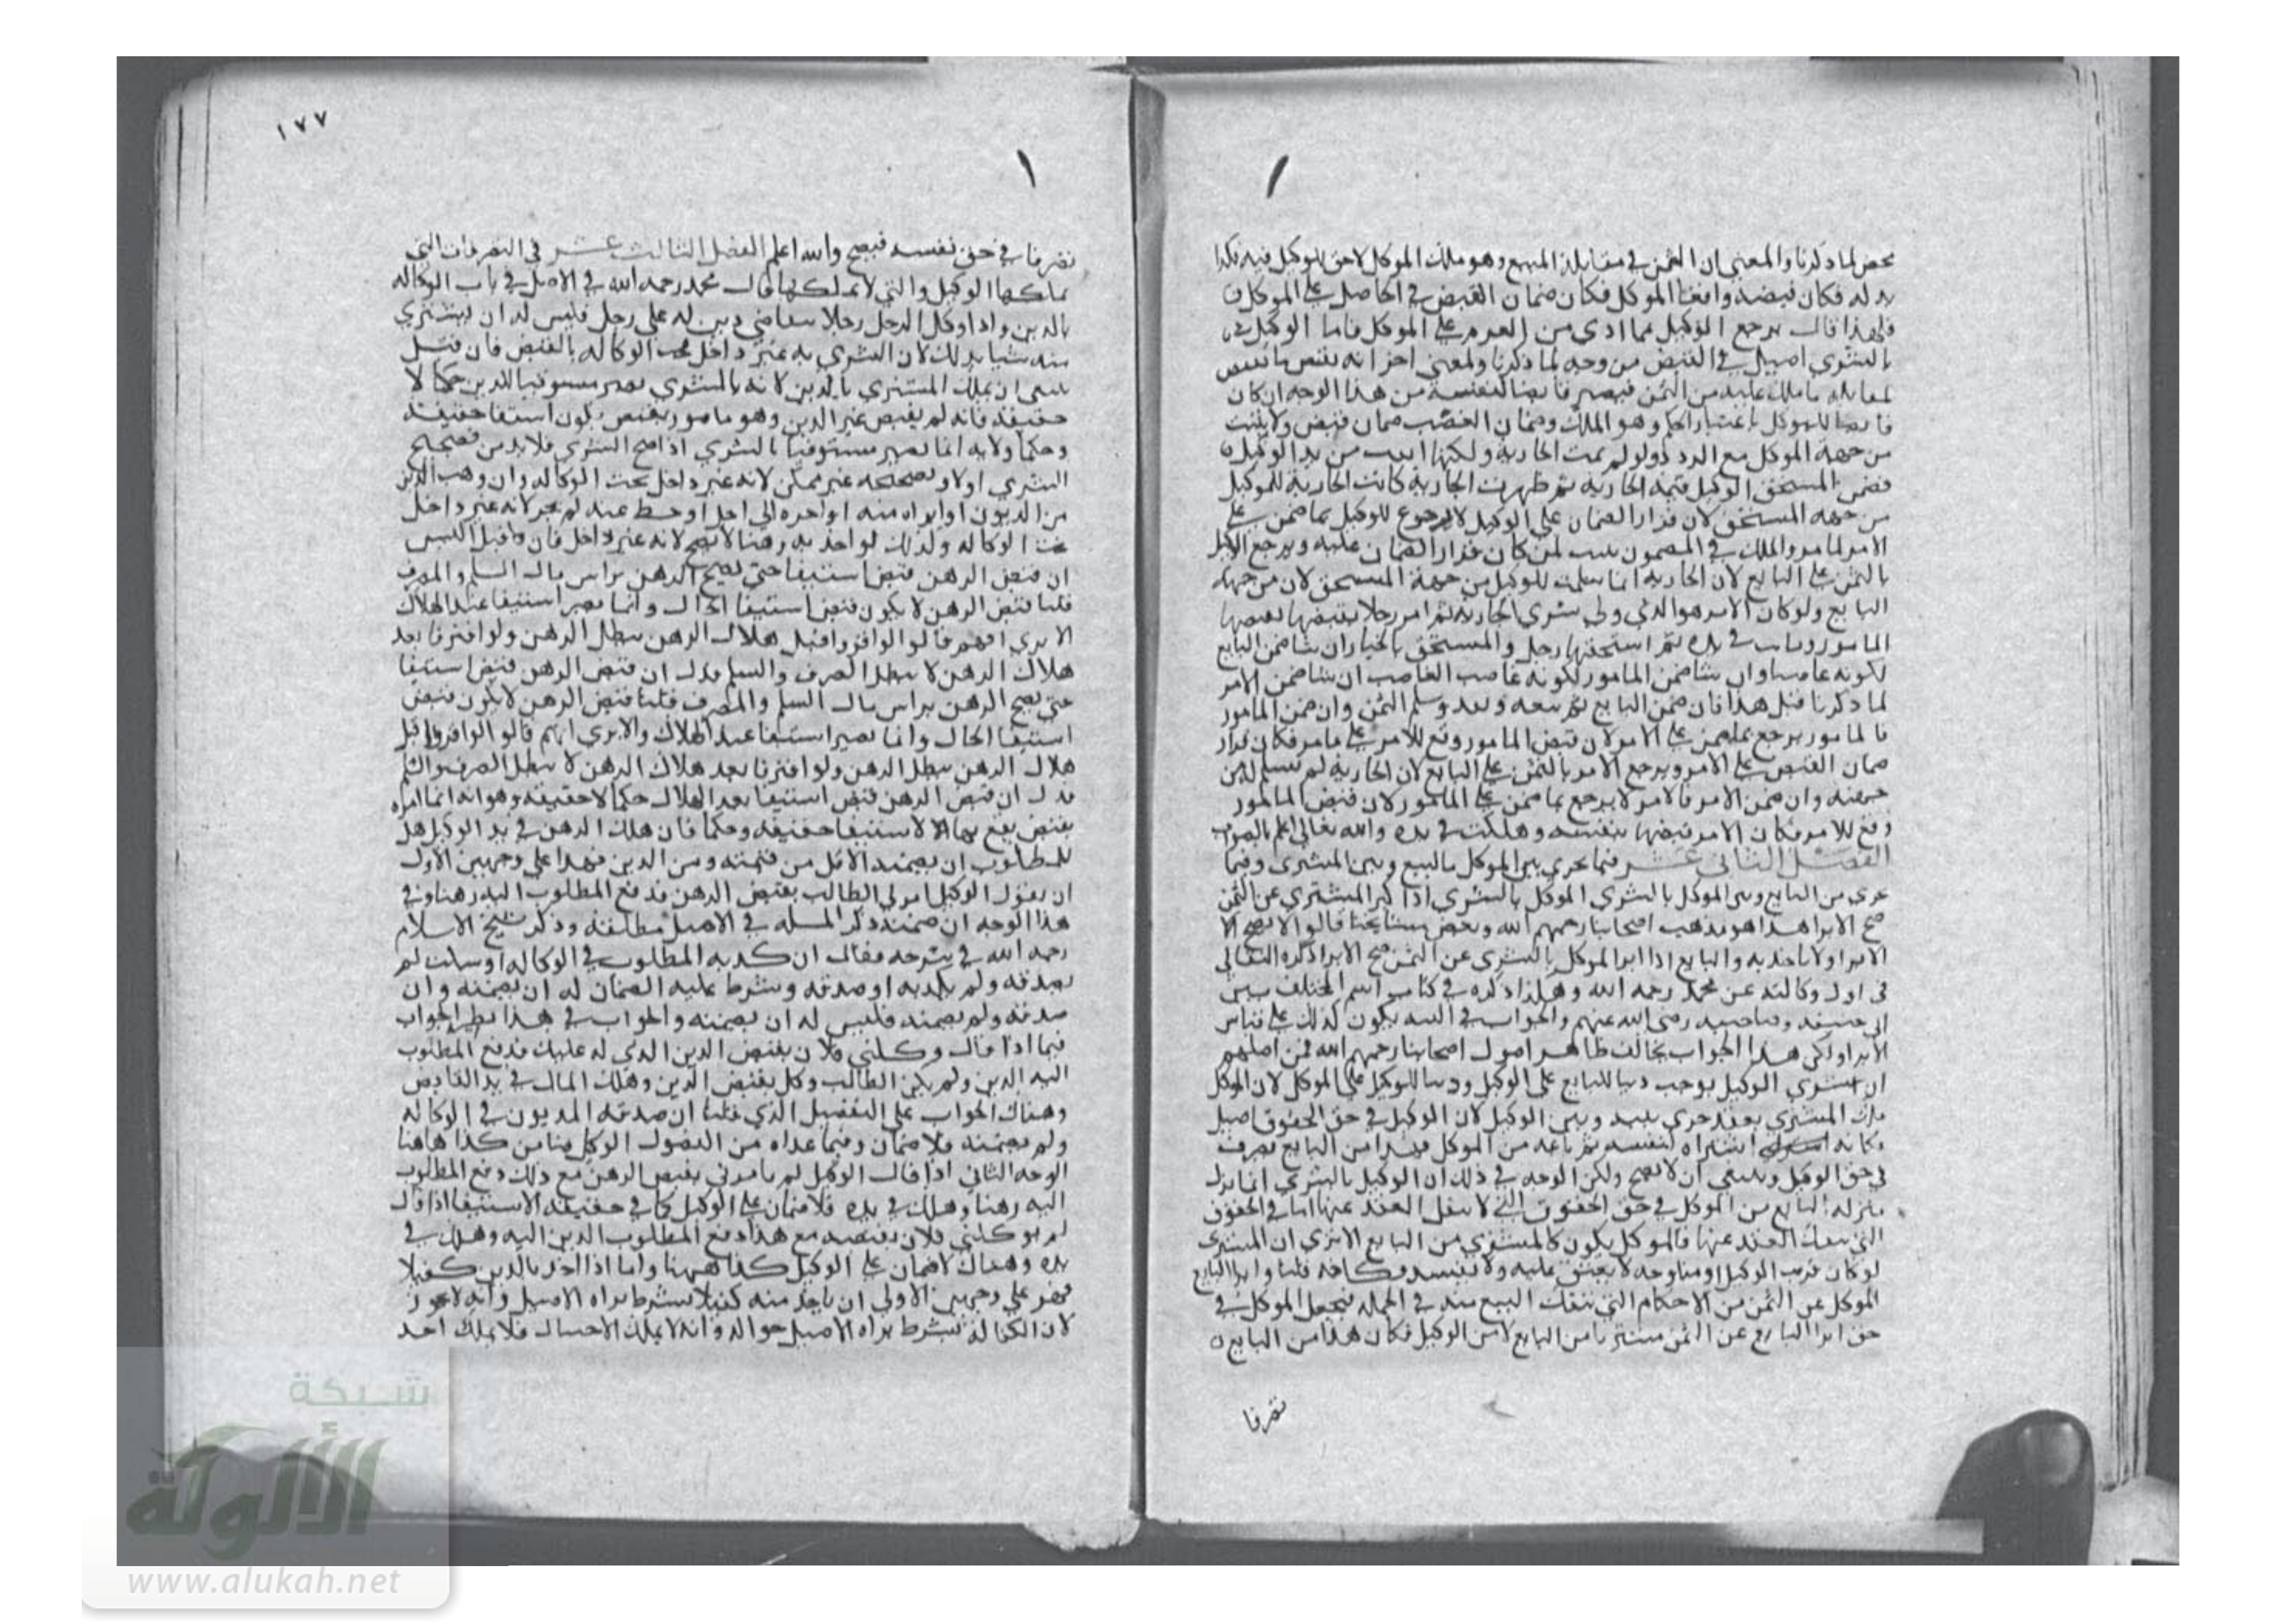 محض لما ذكرنا والمعنى ان الثمن في مقابلة المبيع وهو ملك الموكل لا حق للوكيل فيه فكذا
بدله فكان قبضه واقعا للموكل فكان ضمان القبض في الحاصل على الموكل
فلهذا قال يرجع الوكيل بما ادى من الغرم على الموكل فاما الوكيل
بالشرى اصيل في القبض من وجه لما ذكرنا ولمعنى اخر انه يقبض ما يقبض
لمقابلة ما ملك عليه من الثمن فيصير قابضا لنفسه من هذا الوجه ان كان
قابضا للموكل باعتبار الحكم وهو الملك وضمان الغصب ضمان قبض ولا يثبت
من جهة الموكل مع الرد ولو لم تمت الجارية ولكنها ابقت من يد الوكيل
فضمن المستحق الوكيل قيمة الجارية ثم ظهرت الجارية كانت الجارية للموكل
من جهة المستحق لان قرار الضمان على الوكيل لا يرجع الوكيل بما ضمن على
الامر لما مر والملك في المضمون يثبت لمن كان قرار الضمان عليه ويرجع الوكيل
بالثمن على البايع لان الجارية انما سلمت للوكيل من جهة المستحق لان من جهة
البايع ولو كان الامر هو الذي ولى شرى الجارية ثم امر رجلا بقبضها فقبضها
المامور وماتت في يده ثم استحقها رجل والمستحق بالخيار ان شا ضمن البايع
لكونه غاصبا وان شا ضمن المامور لكونه غاصب الغاصب ان شا ضمن الامر
لما ذكرنا قبل هذا فان ضمن البايع ثم بيعه ونفد وسلم الثمن وان ضمن المامور
فالمامور يرجع بما ضمن على الامر لان قبض المامور وقع للامر على ما مر فكان قرار
ضمان القبض على الامر ويرجع الامر بالثمن على البايع لان الجارية لم تسلم له من
جهته وان ضمن الامر فالامر لا يرجع بما ضمن على المامور لان قبض المامور
وقع للامر فكان الامر قبضها بنفسه وهلكت في يده والله تعالى اعلم بالصواب
الفصل الثاني عشر فيما يجري بين الموكل بالبيع وبين المشترى وفيما
يجري من البايع وبين الموكل بالشرى الموكل بالشرى اذا ابرا المشتري عن الثمن
صح الابرا هذا هو مذهب اصحابنا رحمهم الله وبعض مشايخنا قالوا لا يصح الا
الابرا ولا ناخذ به والبايع اذا ابرا الموكل بالشرى عن الثمن صح الابرا ذكره
في اول وكالته عن محمد رحمه الله وهكذا ذكره في كتاب اسم المختلف بين
ابي حنيفة وصاحبيه رضي الله عنهم والجواب في الهبة يكون كذلك على قياس
الابرا ولكن هذا الجواب يخالف ظاهر اصول اصحابنا رحمهم الله فمن اصلهم
ان شرى الوكيل يوجب دينا للبايع على الوكيل ودينا للوكيل على الموكل لان الموكل
ملك المشتري بعقد جرى بينه وبين الوكيل لان الوكيل في حق الحقوق اصيل
فكانه اشتراه لنفسه ثم باعه من الموكل فهذا من البايع تصرف
في حق الوكيل وينبغي ان لا يصح ولكن الوجه في ذلك ان الوكيل بالشرى انما نزل
منزلة البايع من الموكل في حق الحقوق التي لا ينفك العقد عنها اما في الحقوق
التي ينفك العقد عنها فالموكل يكون كالمشتري من البايع الا ترى ان المشترى
لو كان قريب الوكيل او منكوحه لا يعتق عليه ولا يفسد نكاحه قلنا وابرا البايع
الموكل عن الثمن من الاحكام التي ينفك البيع عنه في الجملة فيجعل الموكل في
حق ابرا البايع عن الثمن مشتريا من البايع لا من الوكيل فكان هذا من البايع
تصرفا
١٧٧
تصرفا في حق نفسه فيصح والله اعلم الفصل الثالث عشر في التصرفات التي
يملكها الوكيل والتي لا يملكها قال محمد رحمه الله في الاصل في باب الوكالة
بالدين واذا وكل الرجل رجلا بتقاضي دين له على رجل فليس له ان يشتري
منه شيا بذلك لان الشرى به غير داخل تحت الوكالة بالقبض فان قيل
ينبغي ان يملك المشترى بالدين لانه بالشرى يصير مستوفيا للدين حكما لا
حقيقة فانه لم يقبض غير الدين وهو مامور بقبض يكون استيفا حقيقة
وحكما ولانه انما يصير مستوفيا بالشرى اذا صح الشرى فلا بد من تصحيح
الشرى اولا وتصحيحه غير ممكن لانه غير داخل تحت الوكالة وان وهب الدين
من المديون او ابراه منه او اخره الى اجل او حط عنه لم يجز لانه غير داخل
تحت الوكالة وكذلك لو اخذ به رهنا لا يصح لانه غير داخل فان قيل اليس
ان قبض الرهن قبض استيفا حتى يصح الرهن براس مال السلم والصرف
قلنا قبض الرهن لا يكون قبض استيفا للحال وانما يصير استيفا عند الهلاك
الا يرى انهم قالوا لو افترقا قبل هلاك الرهن يبطل الرهن ولو افترقا بعد
هلاك الرهن لا يبطل الصرف والسلم فدل ان قبض الرهن قبض استيفا
حتى يصح الرهن براس مال السلم والصرف قلنا قبض الرهن لا يكون قبض
استيفا للحال وانما يصير استيفا عند الهلاك والا يرى انهم قالوا لو افترقا قبل
هلاك الرهن يبطل الرهن ولو افترقا بعد هلاك الرهن لا يبطل الصرف والسلم
فدل ان قبض الرهن قبض استيفا بعد الهلاك حكما لا حقيقة وهو انه انما امره
بقبض يقع بها الاستيفا حقيقة وحكما فان هلك الرهن في يد الوكيل هل
للمطلوب ان يضمنه الاقل من قيمته ومن الدين فهذا على وجهين الاول
ان يقول الوكيل امرني الطالب بقبض الرهن فدفع المطلوب اليه رهنا وفي
هذا الوجه ان ضمنه ذكر المسلة في الاصل مطلقة وذكر شيخ الاسلام
رحمه الله في شرحه فقال ان كذبه المطلوب في الوكالة او سكت لم
يصدقه ولم يكذبه او صدقه وشرط عليه الضمان له ان يضمنه وان
صدقه ولم يضمنه فليس له ان يضمنه والجواب في هذا نظير الجواب
فيما اذا قال وكلني فلان بقبض الدين الذي له عليك فدفع المطلوب
اليه الدين ولم يكن الطالب وكل بقبض الدين وهلك المال في يد القابض
وهناك الجواب على التفصيل الذي قلنا ان صدقه المديون في الوكالة
ولم يضمنه فلا ضمان وفيما عداه من الفصول الوكيل ضامن كذا هاهنا
الوجه الثاني اذا قال الوكيل لم يامرني بقبض الرهن مع ذلك دفع المطلوب
اليه رهنا وهلك في يده فلا ضمان على الوكيل كما في حقيقة الاستيفا اذا قال
لم يوكلني فلان بقبضه مع هذا دفع المطلوب الدين اليه وهلك في
يده وهناك لا ضمان على الوكيل كذا ههنا واما اذا اخذ بالدين كفيلا
فهو على وجهين الاولى ان ياخذ منه كفيلا بشرط براة الاصيل وانه لا يجوز
لان الكفالة بشرط براة الاصيل حوالة وانه لا يملك الاحتيال فلا يملك اخذ
شبكة
الألوكة
www.alukah.net